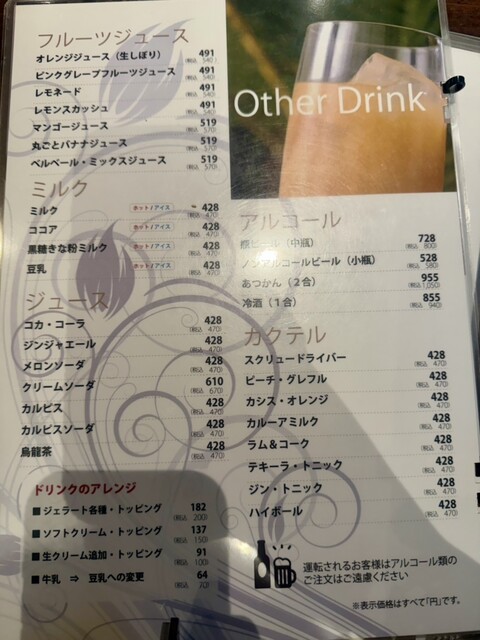 フルーツジュース
オレンジジュース（生しぼり） 491
（税込 540）
ピンクグレープフルーツジュース 491
（税込 540）
レモネード 491
（税込 540）
レモンスカッシュ 491
（税込 540）
マンゴージュース 519
（税込 570）
丸ごとバナナジュース 519
（税込 570）
ベルベール・ミックスジュース 519
（税込 570）
ミルク
ミルク ホット/アイス 428
（税込 470）
ココア ホット/アイス 428
（税込 470）
黒糖きな粉ミルク ホット/アイス 428
（税込 470）
豆乳 ホット/アイス 428
（税込 470）
ジュース
コカ・コーラ 428
（税込 470）
ジンジャエール 428
（税込 470）
メロンソーダ 428
（税込 470）
クリームソーダ 610
（税込 670）
カルピス 428
（税込 470）
カルピスソーダ 428
（税込 470）
烏龍茶 428
（税込 470）
ドリンクのアレンジ
■ジェラート各種・トッピング 182
（税込 200）
■ソフトクリーム・トッピング 137
（税込 150）
■生クリーム追加・トッピング 91
（税込 100）
■牛乳 ⇒ 豆乳への変更 64
（税込 70）
Other Drink
アルコール
瓶ビール（中瓶） 728
（税込 800）
ノンアルコールビール（小瓶） 528
（税込 580）
あつかん（2合） 955
（税込 1,050）
冷酒（1合） 855
（税込 940）
カクテル
スクリュードライバー 428
（税込 470）
ピーチ・グレフル 428
（税込 470）
カシス・オレンジ 428
（税込 470）
カルーアミルク 428
（税込 470）
ラム＆コーク 428
（税込 470）
テキーラ・トニック 428
（税込 470）
ジン・トニック 428
（税込 470）
ハイボール 428
（税込 470）
運転されるお客様はアルコール類の
ご注文はご遠慮ください
※表示価格はすべて「円」です。